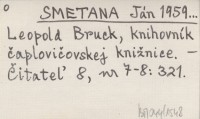 SMETANA Ján 1959...
Leopold Bruck, knihovník
čaplovičovskej knižnice. –
Čitateľ 8, nr 7-8: 321.